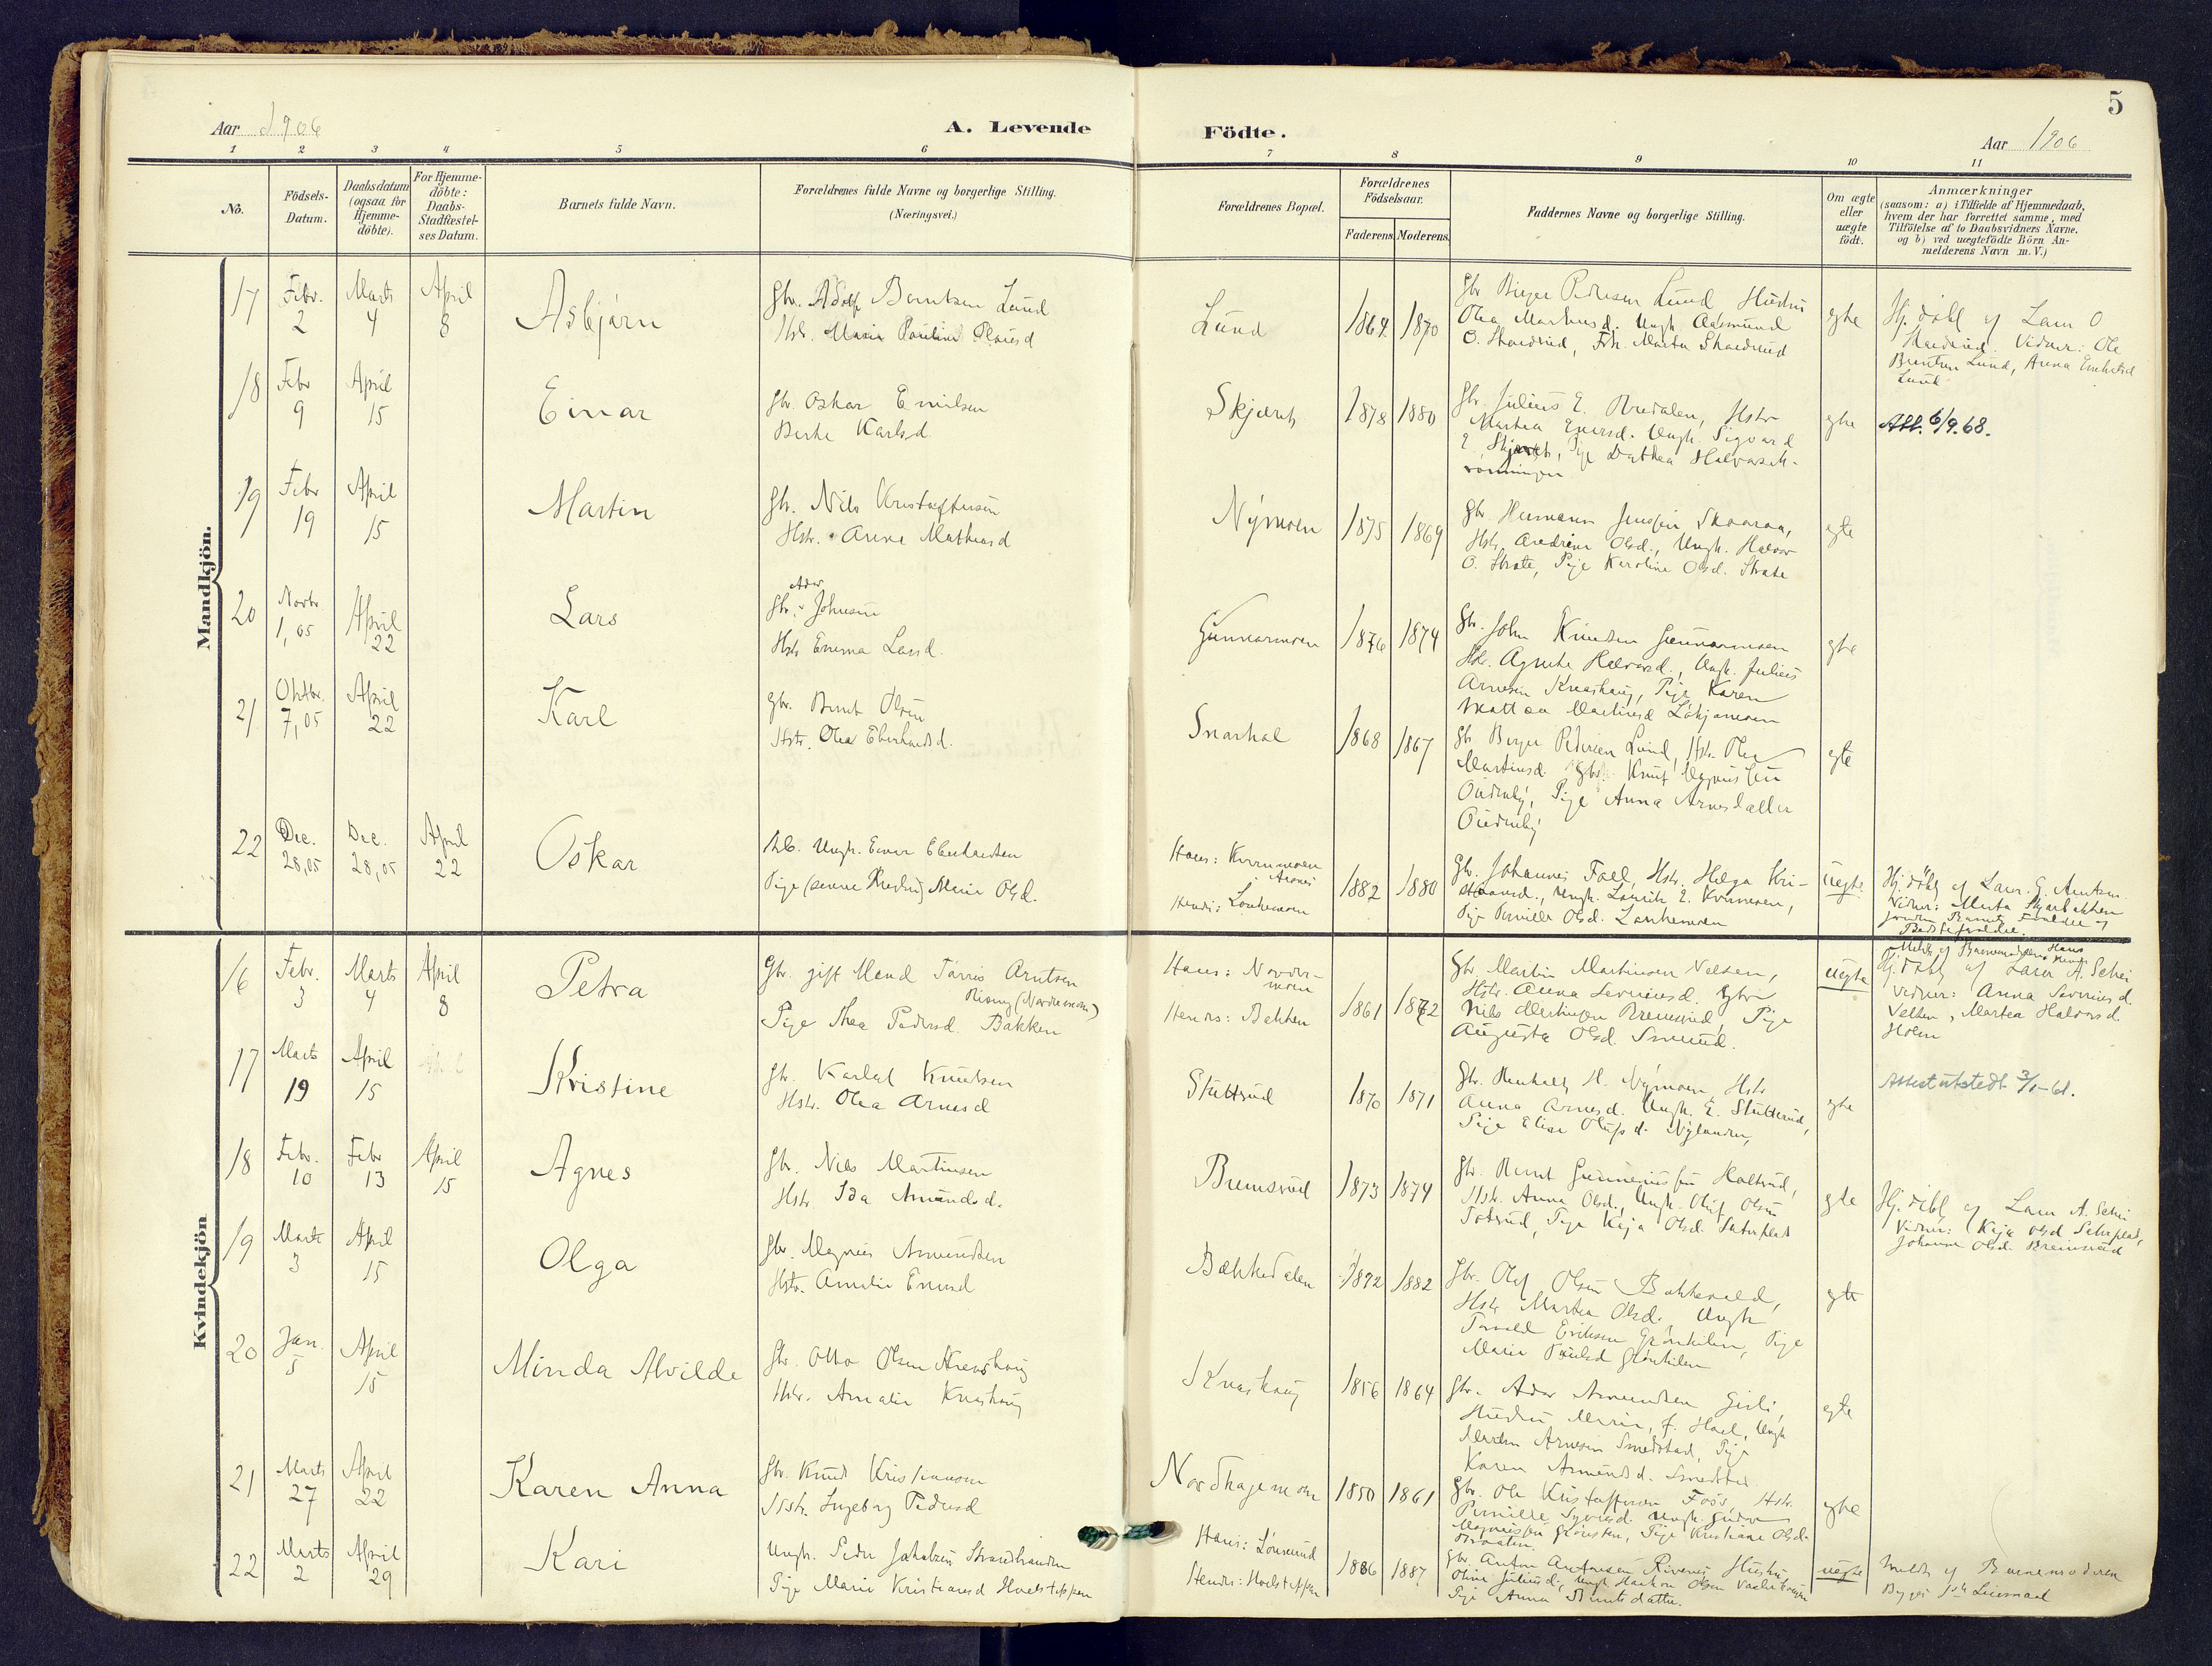 5
Aar 1906
A. Levende
Födte.
Aar 1906
1 2 3 4 5 6 7 8 9 10 11
No.
Födsels-
Datum.
Daabsdatum
(ogsaa for
Hjemme-
döbte).
For Hjemme-
döbte:
Daabs-
Stadfæstel-
ses Datum.
Barnets fulde Navn.
Forældrenes fulde Navne og borgerlige Stilling.
(Næringsvei.)
Forældrenes Bopæl.
Forældrenes
Födselsaar.
Faderens. Moderens.
Faddernes Navne og borgerlige Stilling.
Om ægte
eller
uægte
födt.
Anmærkninger
(saasom: a) i Tilfælde af Hjemmedaab,
hvem der har forrettet samme, med
Tilföielse af to Daabsvidners Navne,
og b) ved uægtefödte Börn An-
melderens Navn m. V.)
Mandkjön.
17 Febr. 2 Marts 4 April 8 Asbjørn
Gbr. Adolf Berntsen Lund
Hstr. Maria Pauline Olausd
Lund 1864 1870
Gbr Birger Pedersen Lund Hustru
Olea Martinusd. Ungk. Aasmund
egte
Hj. døbt af Lærer O
Vidner: Ole
Berntsen Lund, Anna
Lund
18 Febr 9 April 15 Einar
Gbr. Oskar Emilsen
Berte Karlsd.
Skjæret 1878 1880
Gbr. Julius E. Bredalen, Hstr
Martea Enersd. Ungk. Sigvard
E. Skjæret, Pige Dorthea
egte
Att. 6/9.68.
19 Febr 19 April 15 Martin
Gbr. Nils Kristoffersen
Hstr. Anne Mathiasd
Nymoen 1875 1869
Gbr. Hermann Jensen Skaaraa,
Hstr. Andrine Olsd., Ungk. Halvor
O. Strate, Pige Karoline Olsd. Strate
egte
20 Novbr 1, 05 April 22 Lars
Ador
Gbr. Johnsen
Hstr Emma Larsd.
Gunnarmoen 1876 1874
Gbr. John Knudsen Gunnarmoen
Hstr. Agnethe Halvorsd., Ungk. Julius
Arnesen Knashaug, Pige Karen
egte
21 Oktbr. 7, 05 April 22 Karl
Gbr. Bernt Olsen
Hstr. Olea Eberhardsd.
Snarhol 1868 1867
Gbr Birger Pedersen Lund, Hstr. Olea
Martinusd. Gbr. Knut Magnussen
Oudenby, Pige Anna Arnesdatter
Oudenby
egte
22 Dec. 28, 05 Dec. 28, 05 April 22 Oskar
Ungk. Einar Eberhardsen
Pige (senere Hustru) Marie Olsd.
Hans: Kvernmoen
i Aasnes
Hendes: Lonkemoen
1882 1880
Gbr. Johannes Foell, Hstr. Helga Kri-
stiansd., Ungk. Laurits E. Kvernmoen,
Pige Pernille Olsd. Lonkemoen
uegte
Hj. døbt af Lærer G. Arntsen
Vidner: Marta Skjærbakken
foruden Barnets Forældre og
Bedsteforældre.
Kvindekjön
16 Febr. 3 Marts 4 April 8 Petra
Gbr. gift Mand Tørris Arntsen
Risung (Nordermoen)
Pige Thea Pedersd. Bakken
Hans: Norder-
moen
Hendes: Bakken
1861 1872
Gbr Martin Martinsen Velten,
Hstr. Anna Severinsd. Gbr
Nils Martinsen Bremsrud, Pige
Augusta Olsd. Smerud.
uegte
Hj. døbt af Lærer A. Schei
Vidner: Anna Severinsd.
Velten, Martea Halvorsd.
Holen
17 Marts 19 April 15 Kristine
Gbr. Karlot Knutsen
Hstr. Olea Arnesd
Stuttrud 1870 1871
Gbr. H. Nymoen, Hstr
Anna Arnesd. Ungk. E. Stuttrud,
Pige Elise Olufsd. Nylandn,
egte
Attest utstedt 3/1-61.
18 Febr. 10 Febr 13 April 15 Agnes
Gbr. Nils Martinsen
Hstr. Ida Amundsd.
Bremsrud 1873 1874
Gbr. Bernt Gunneriussen Holtrud,
Hstr. Anna Olsd., Ungk. Oluf Olsen
Totrud, Pige Kaja Olsd. Sæterplads
egte
Hj. døbt af Lærer A. Schei
Vidner: Kaja Olsd Sæterplads,
Johanne Olsd. Bremsrud
19 Marts 3 April 15 Olga
Gbr. Magnus Amundsen
Hstr. Amalie Enersd
Bækkedalen 1872 1882
Gbr. Olaf Olsen Bakkevold,
Hstr Martea Olsd. Ungk
Torvald Eriksen Grønkilen, Pige
Marie Paulsd Grønkilen
egte
20 Jan. 5 April 15 Minda Alvilde
Gbr. Otto Olsen Knashaug
Hstr. Amalie Knashaug
Knashaug 1856 1864
Gbr. Ador Amundsen Gisli,
Hustru Marie, f. Hoel, Ungk
Martin Arnesen Smedstad, Pige
Karen Amundsd. Smedstad
egte
21 Marts 27 April 22 Karen Anna
Gbr. Knud Kristiansen
Hstr. Ingeborg Pedersd
Nordhagemoen 1850 1861
Gbr. Ole Kristoffersen Foss, Hstr.
Pernille Syversd. Ungk. Gudm
Magnussen Grønsten, Pige Kristiane Olsd.
egte
22 Marts 2 April 29 Kari
Ungk. Peder Jakobsen Strandbranden
Pige Marie Kristiansd Hoelstøppen
Hans: Lønrud
Hendes: Hoelstøppen
1886 1887
Gbr. Anton Antonsen Risenes Hustru
Oline Juliusd., Ungk Haakon Olsen
Pige Anna Berntsdatter.
uegte
Meldt af Barnemoderen